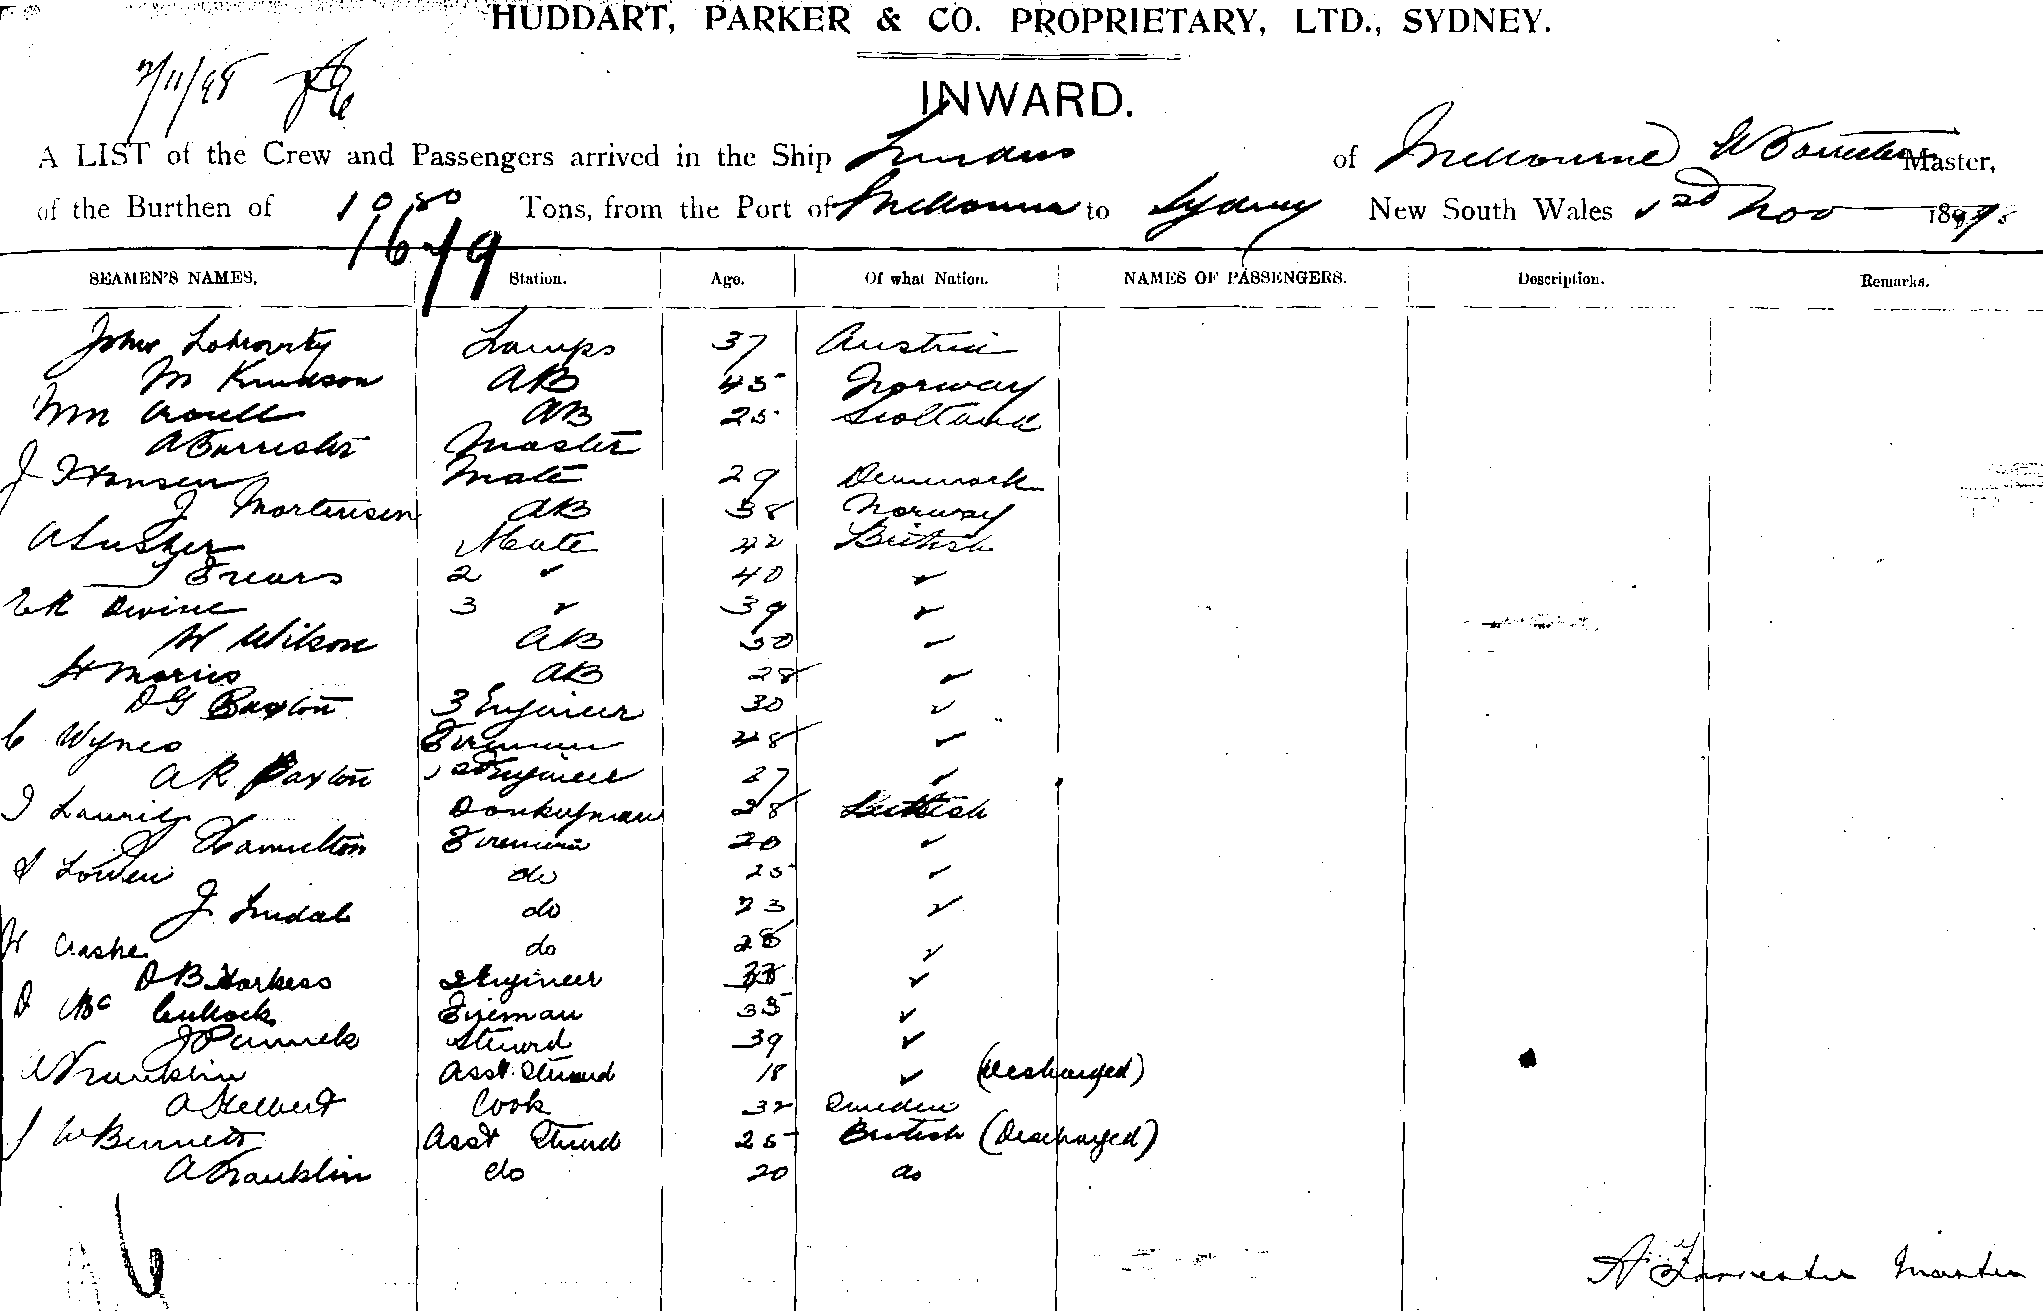 HUDDART, PARKER & CO. PROPRIETARY, LTD., SYDNEY.
2/11/98
INWARD.
A LIST of the Crew and Passengers arrived in the Ship of Melbourne Master,
of the Burthen of 1080 Tons, from the Port of Melbourne to Sydney New South Wales Nov 1898
1679
SEAMEN'S NAMES. Station. Age. Of what Nation. NAMES OF PASSENGERS. Description. Remarks.
John Lamps 37 Austria
M Knudson AB 45 Norway
Wm AB 25 Scotland
A Forrester Master
J Hansen Mate 29 Denmark
J Mortensen AB 38 Norway
A Lusher Mate 42 British
Frears 2 ✓ 40 ✓
Devine 3 ✓ 39 ✓
W Wilson AB 50 ✓
H Morris AB 28 ✓
D G Paxton 3 Engineer 30 ✓
C Wynes Fireman 48 ✓
A R Paxton 1st Engineer 37 ✓
Donkeyman 38 British
J Hamilton Fireman 20 ✓
Lowen do 25 ✓
J do 23 ✓
do 28 ✓
D B Harkess 2 Engineer 33 ✓
D Mc Cullock Fireman 35 ✓
J Pinnick Steward 39 ✓
Franklin Asst Steward 18 ✓ (Discharged)
A Helbert Cook 32 Sweden
J W Bennett Asst Steward 25 British (Discharged)
A Franklin do 20 do
26
A Forrester Master